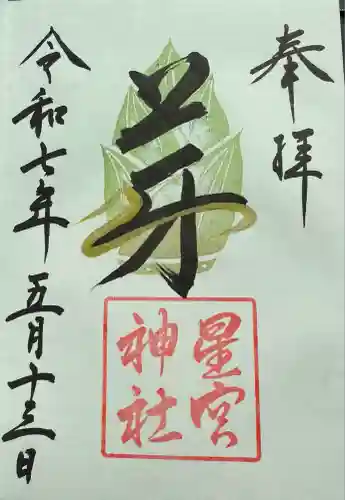 奉拝
芽
星宮
神社
令和七年五月十三日